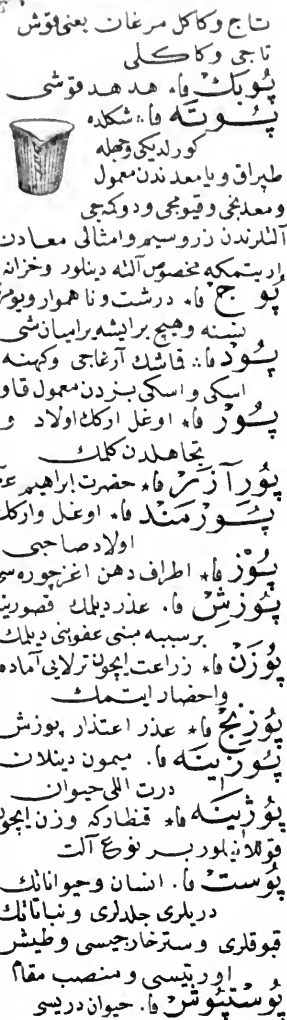 تاج و كاكل مرغان يعنى قوش
تاجى و كاكلى
پُوبَكْ فا. هدهد قوشى
پُوتَه فا. شكلده
كورلديكى وجهله
طپراق و يا معدندن معمول
و معدنجى و قيومجى و دوكه جى
آلتلرندن زر و سيم و امثالى معادن
اريتمكه مخصوص آلته دينلور و خزانه
پُوچ فا. درشت و ناهموار و
نسنه و هيچ برايشه يراميان شى
پُود فا. قاشك آرغاجى و كهنه
اسكى و اسكى بزدن معمول قاو
پُور فا. اوغل اركك اولاد و
تجاهلدن كلمك
پُورِ آزَر فا. حضرت ابراهيم
پُورمَند فا. اوغل و ارك
اولاد صاحبى
پُوز فا. اطراف دهن اغز چوره سى
پُوزِش فا. عذر ديلمك قصورينى
برسببه مبنى عفوينى ديلمك
پُوزَن فا. زراعت ايچون ترلايى آماده
و احضار ايتمك
پُوزِنج فا. عذر اعتذار پوزش
پُوزِينَه فا. ميمون دينلان
درت اللى حيوان
پُوژِينَه فا. قنطار كه وزن ايچون
قوللانيلور بر نوع آلت
پُوست فا. انسان و حيواناتك
دريلرى جلدلرى و نباتاتك
قبوقلرى و سترخارجيسى و طيش
اورتيسى و منصب مقام
پُوستپُوش فا. حيوان دريسى